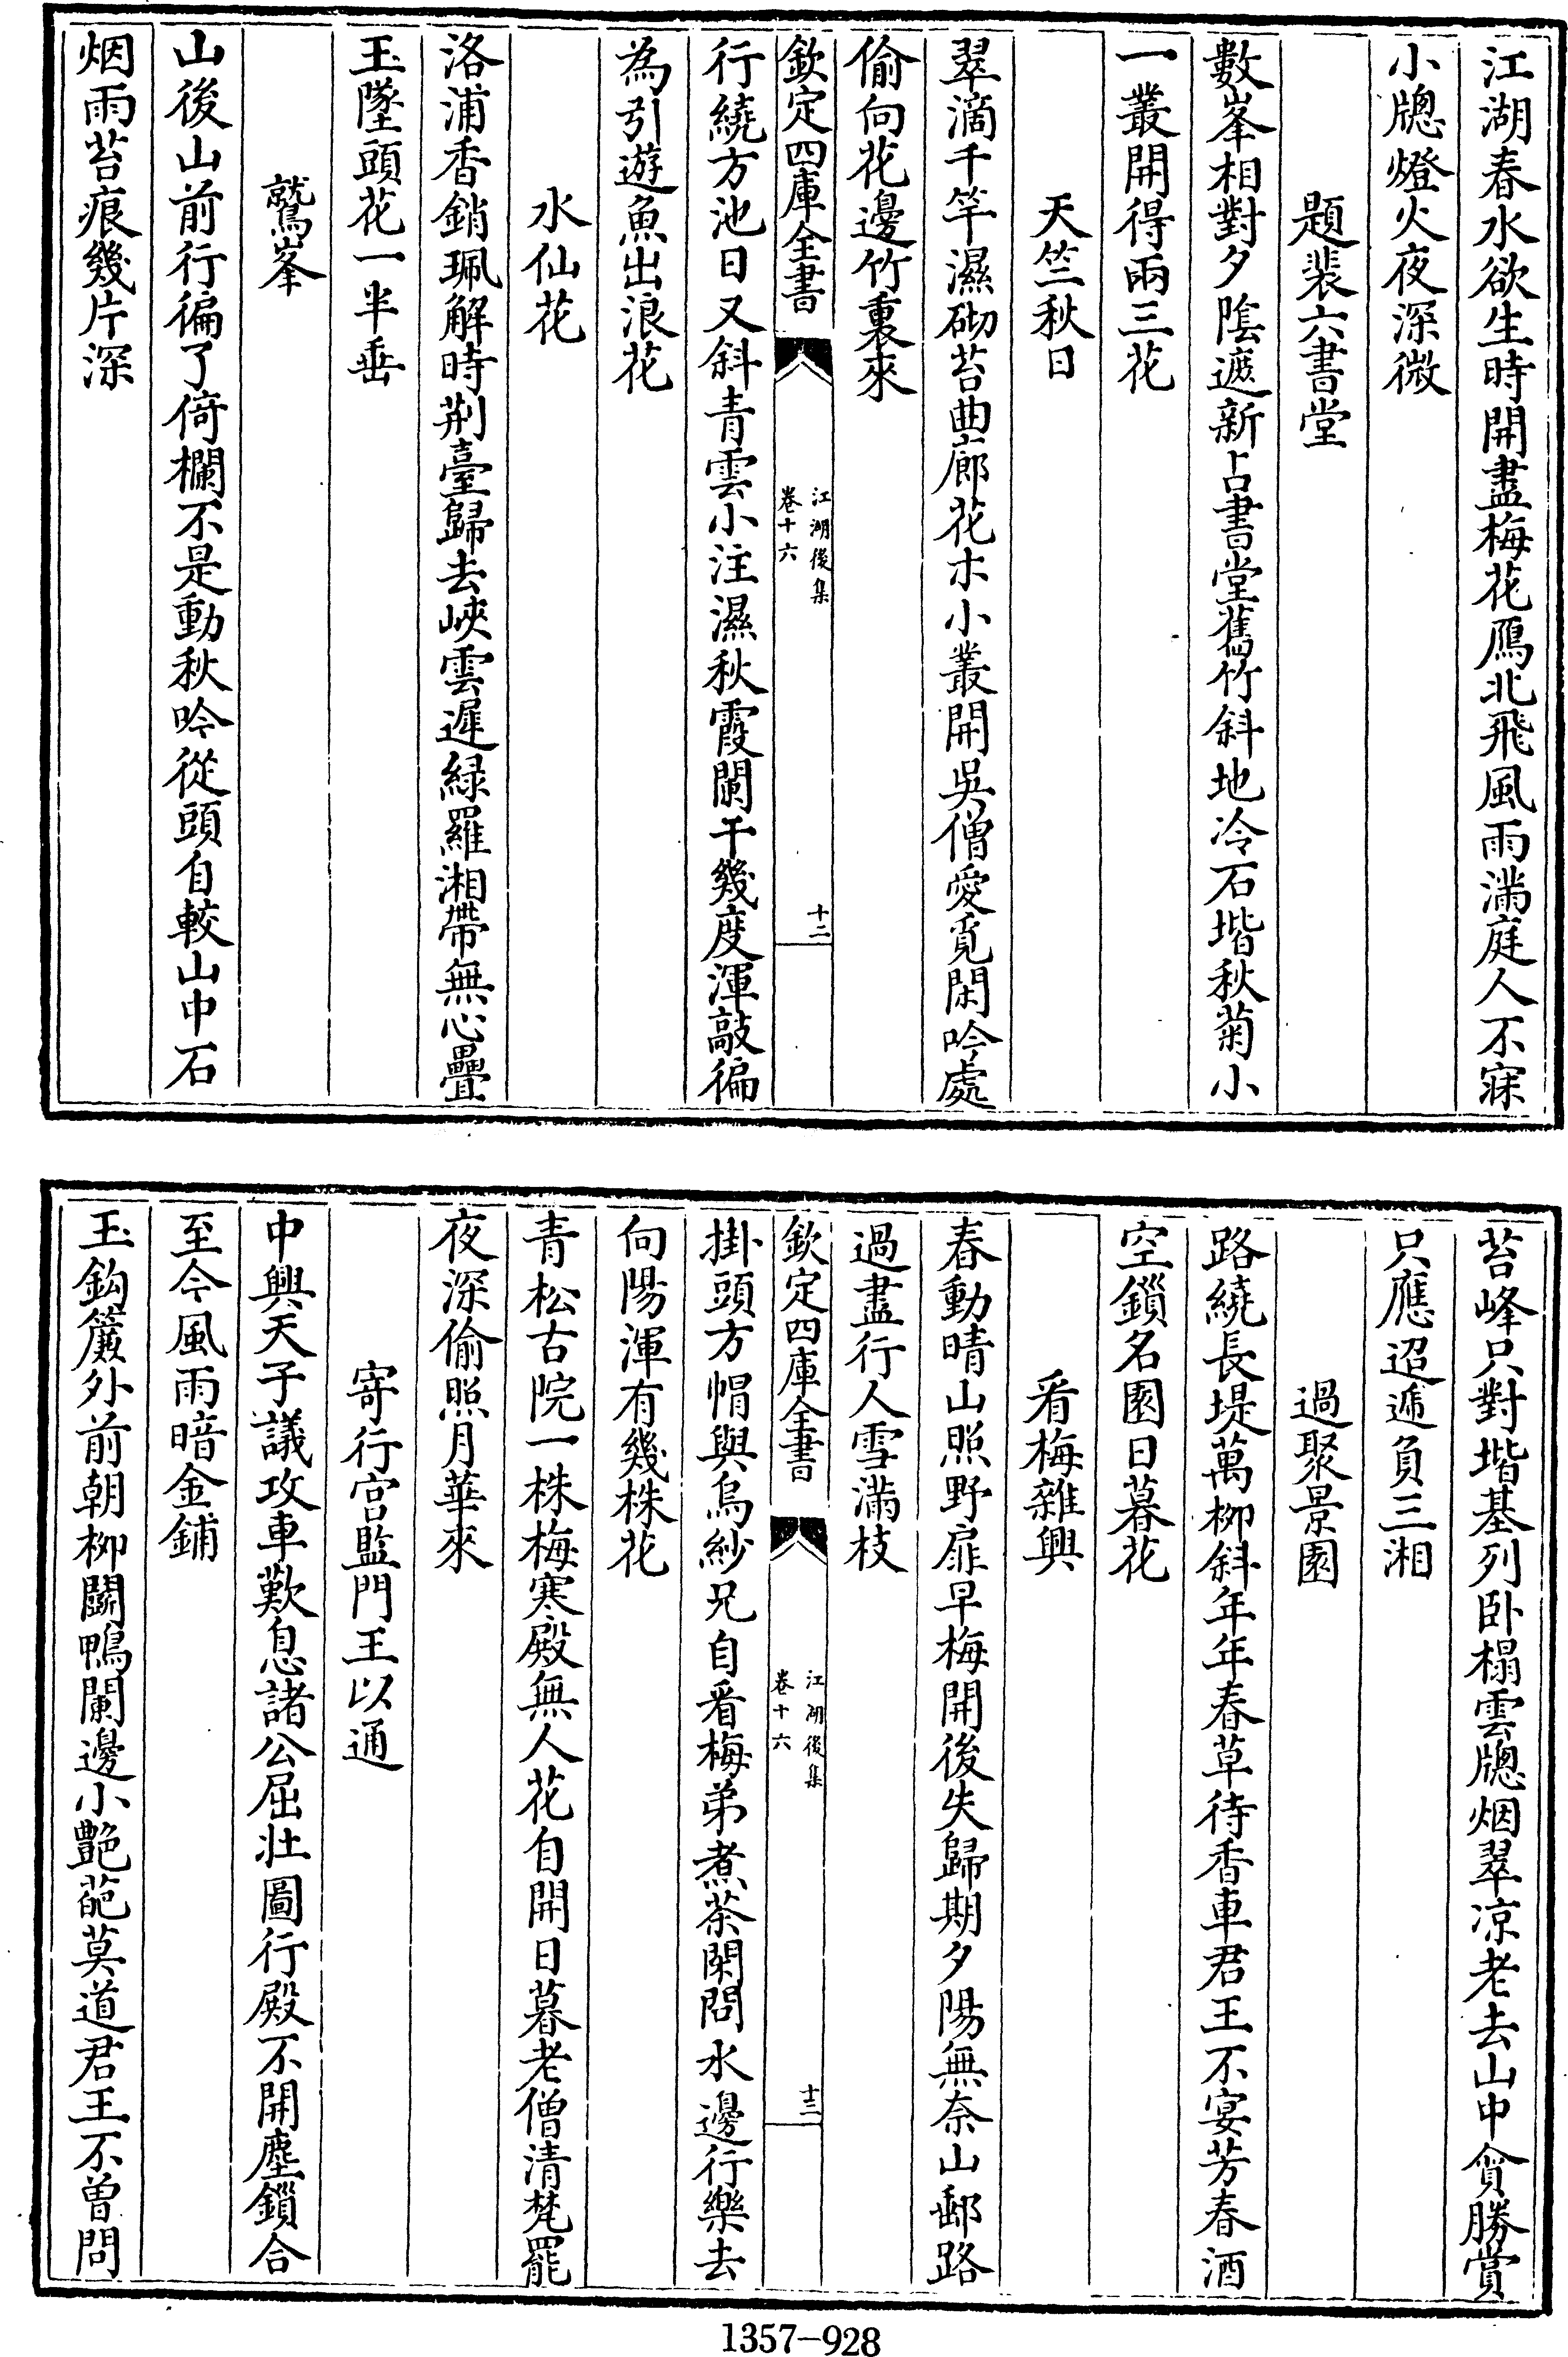 江湖春水欲生時開盡梅花鴈北飛風雨滿庭人不寐
小牕燈火夜深微
題裴六書堂
數峯相對夕陰遮新占書堂舊竹斜地冷石堦秋菊小
一叢開得兩三花
天竺秋日
翠滴千竿濕砌苔曲廊花木小叢開吳僧愛覓閑吟處
偷向花邊竹裏來
欽定四庫全書
江湖後集
卷十六
十二
行繞方池日又斜青雲小注濕秋霞闌干幾度渾敲徧
為引遊魚出浪花
水仙花
洛浦香銷珮解時荆臺歸去峽雲遲緑羅湘帶無心疊
玉墜頭花一半垂
鷲峯
山後山前行徧了倚欄不是動秋吟從頭自較山中石
烟雨苔痕幾片深
苔峰只對堦基列卧榻雲牕烟翠凉老去山中貪勝賞
只應迢遞負三湘
過聚景園
路繞長堤萬栁斜年年春草待香車君王不宴芳春酒
空鎻名園日暮花
看梅雜興
春動晴山照野扉早梅開後失歸期夕陽無奈山郵路
過盡行人雪滿枝
欽定四庫全書
江湖後集
卷十六
十三
掛頭方帽與烏紗兄自看梅弟煮茶閑問水邊行樂去
向陽渾有幾株花
青松古院一株梅寒殿無人花自開日暮老僧清梵罷
夜深偷照月華來
寄行宫監門王以通
中興天子議攻車歎息諸公屈壯圖行殿不開塵鎻合
至今風雨暗金鋪
玉鈎簾外前朝栁鬭鴨闌邊小艷葩莫道君王不曽問
1357-928